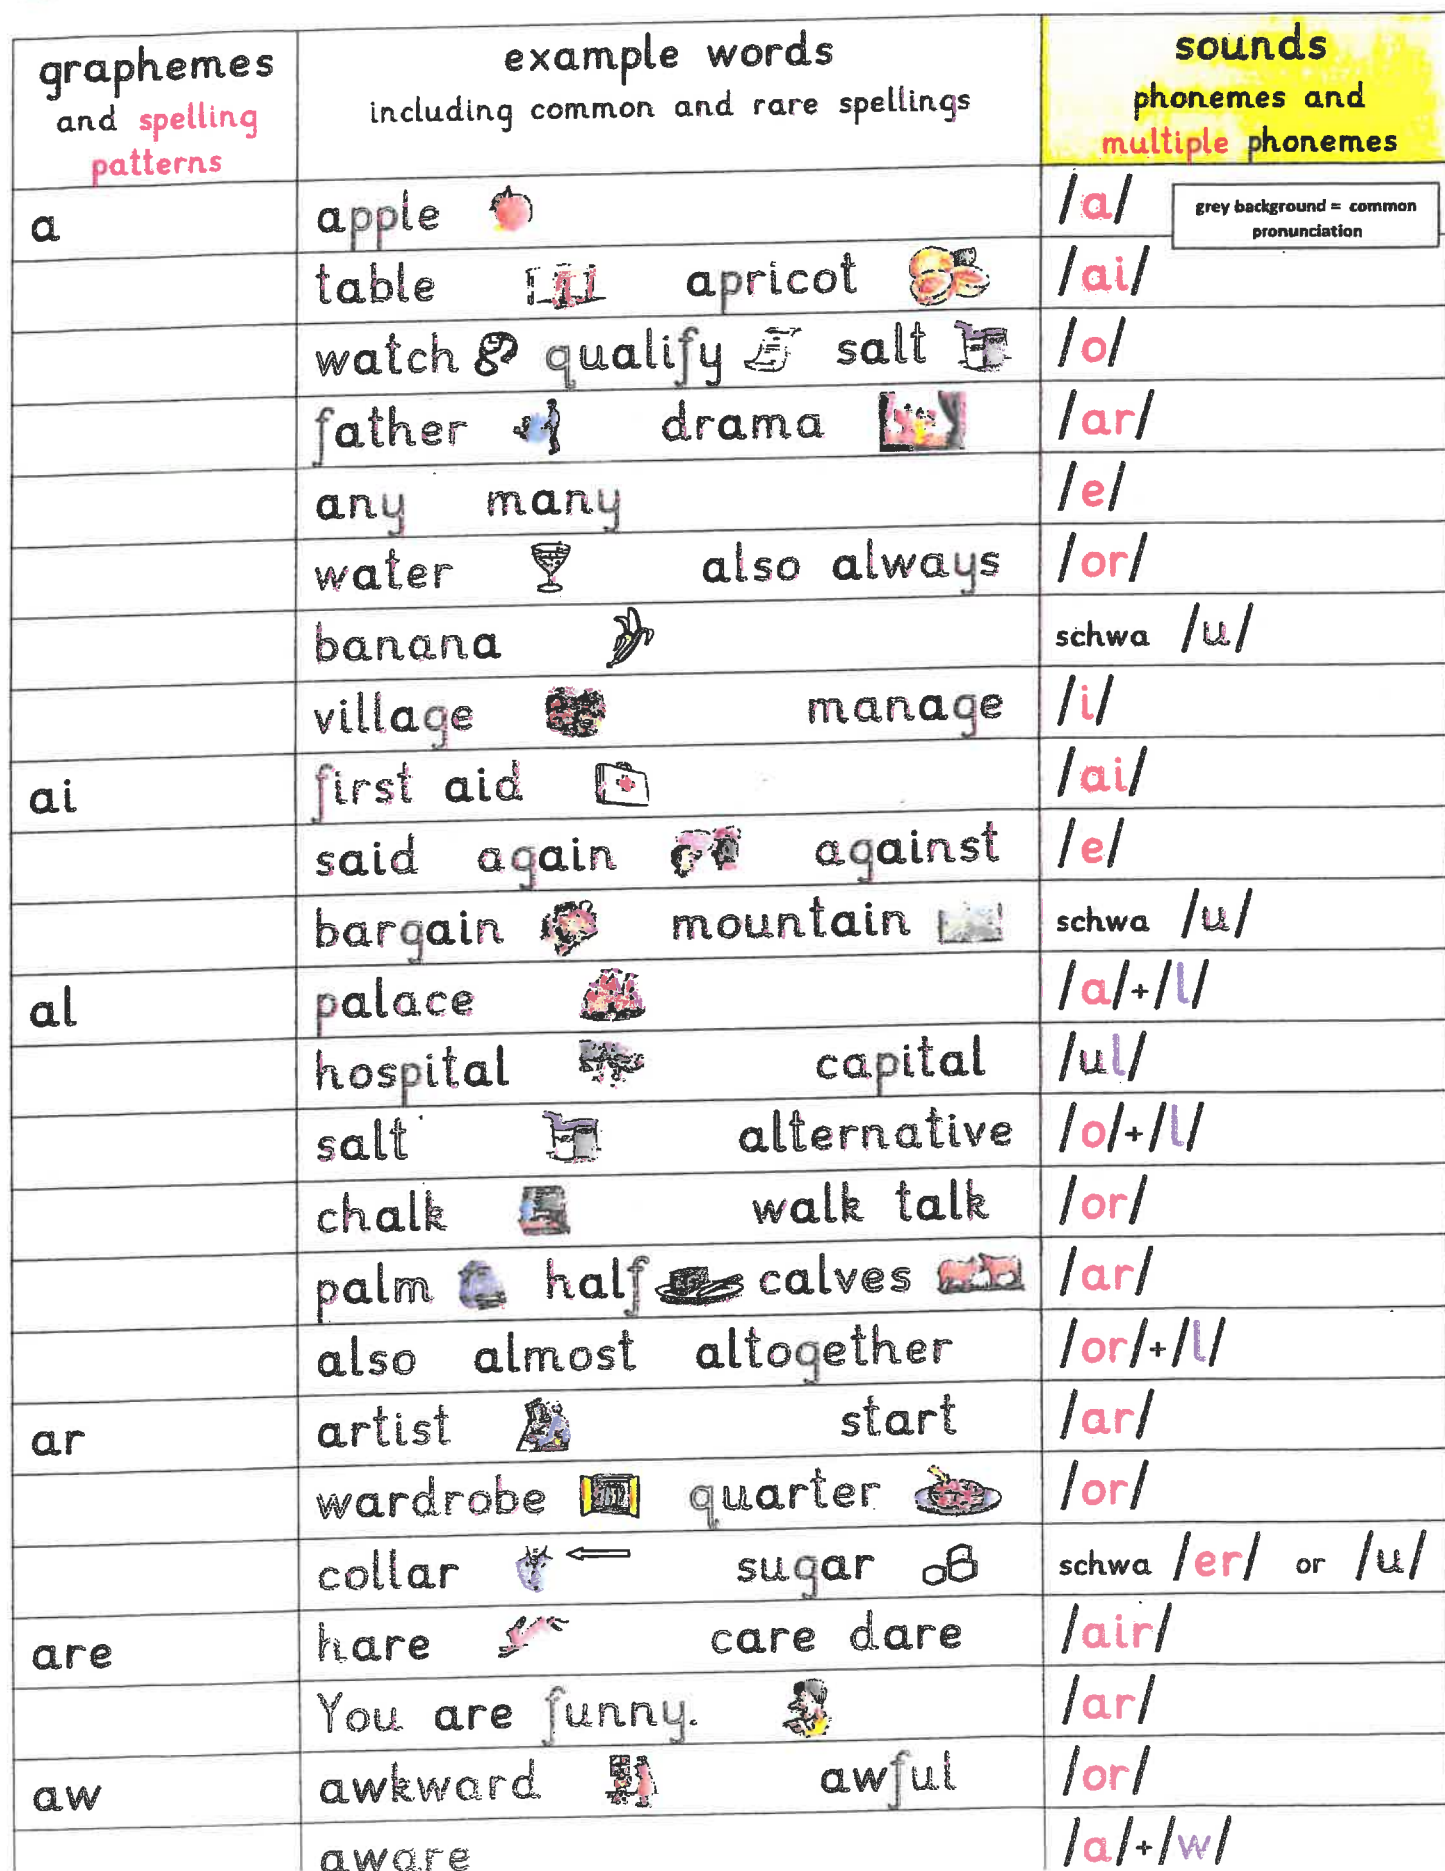 graphemes
and spelling
patterns
example words
including common and rare spellings
sounds
phonemes and
multiple phonemes
a apple /a/
grey background = common
pronunciation
table apricot /ai/
watch qualify salt /o/
father drama /ar/
any many /e/
water also always /or/
banana schwa /u/
village manage /i/
ai first aid /ai/
said again against /e/
bargain mountain schwa /u/
al palace /a/+/l/
hospital capital /ul/
salt alternative /o/+/l/
chalk walk talk /or/
palm half calves /ar/
also almost altogether /or/+/l/
ar artist start /ar/
wardrobe quarter /or/
collar sugar schwa /er/ or /u/
are hare care dare /air/
You are funny. /ar/
aw awkward awful /or/
aware /a/+/w/